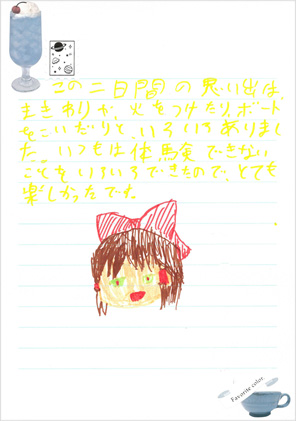 この二日間の思い出は、
まきわりや、火をつけたり、ボート
をこいだりと、いろいろありまし
た。いつもは体験できない
ことをいろいろできたので、とても
楽しかったです。
Favorite color